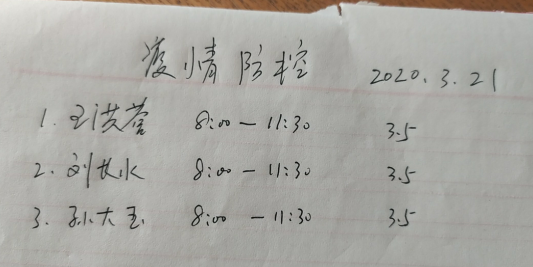 疫情防控 2020.3.21
1. 王洪营 8:00 — 11:30 3.5
2. 刘长水 8:00 — 11:30 3.5
3. 孙大玉 8:00 — 11:30 3.5